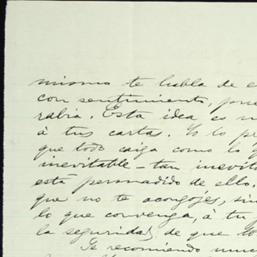 mismo te habla de e
con sentimiento, pone
rabia. Esta idea es m
á tus cartas. Yo lo pr
que todo caiga como lo
inevitable - tan inevit
está persuadido de ello.
que no te acongojes, sin
lo que convenga, á tu
la seguridad, de que lo
Te recomiendo muc